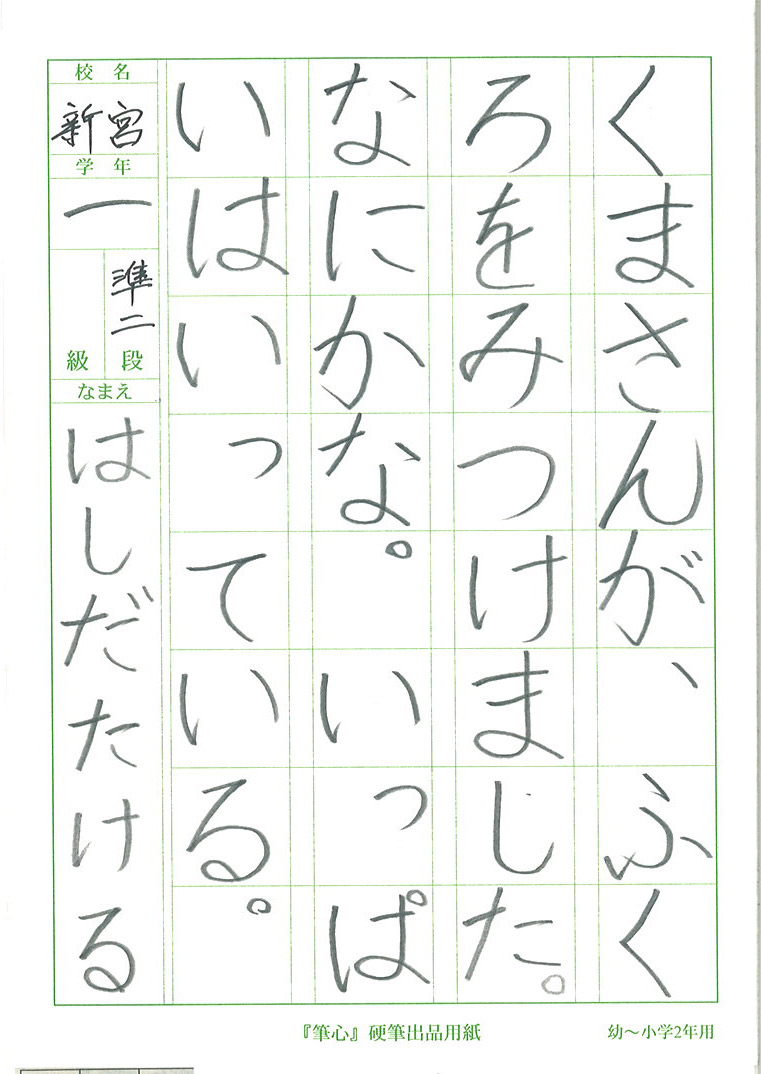 くまさんが、ふく
ろをみつけました。
なにかな。いっぱ
いはいっている。
校名
新宮
学年
一
準二
段
級
なまえ
はしだたける
『筆心』硬筆出品用紙
幼～小学2年用